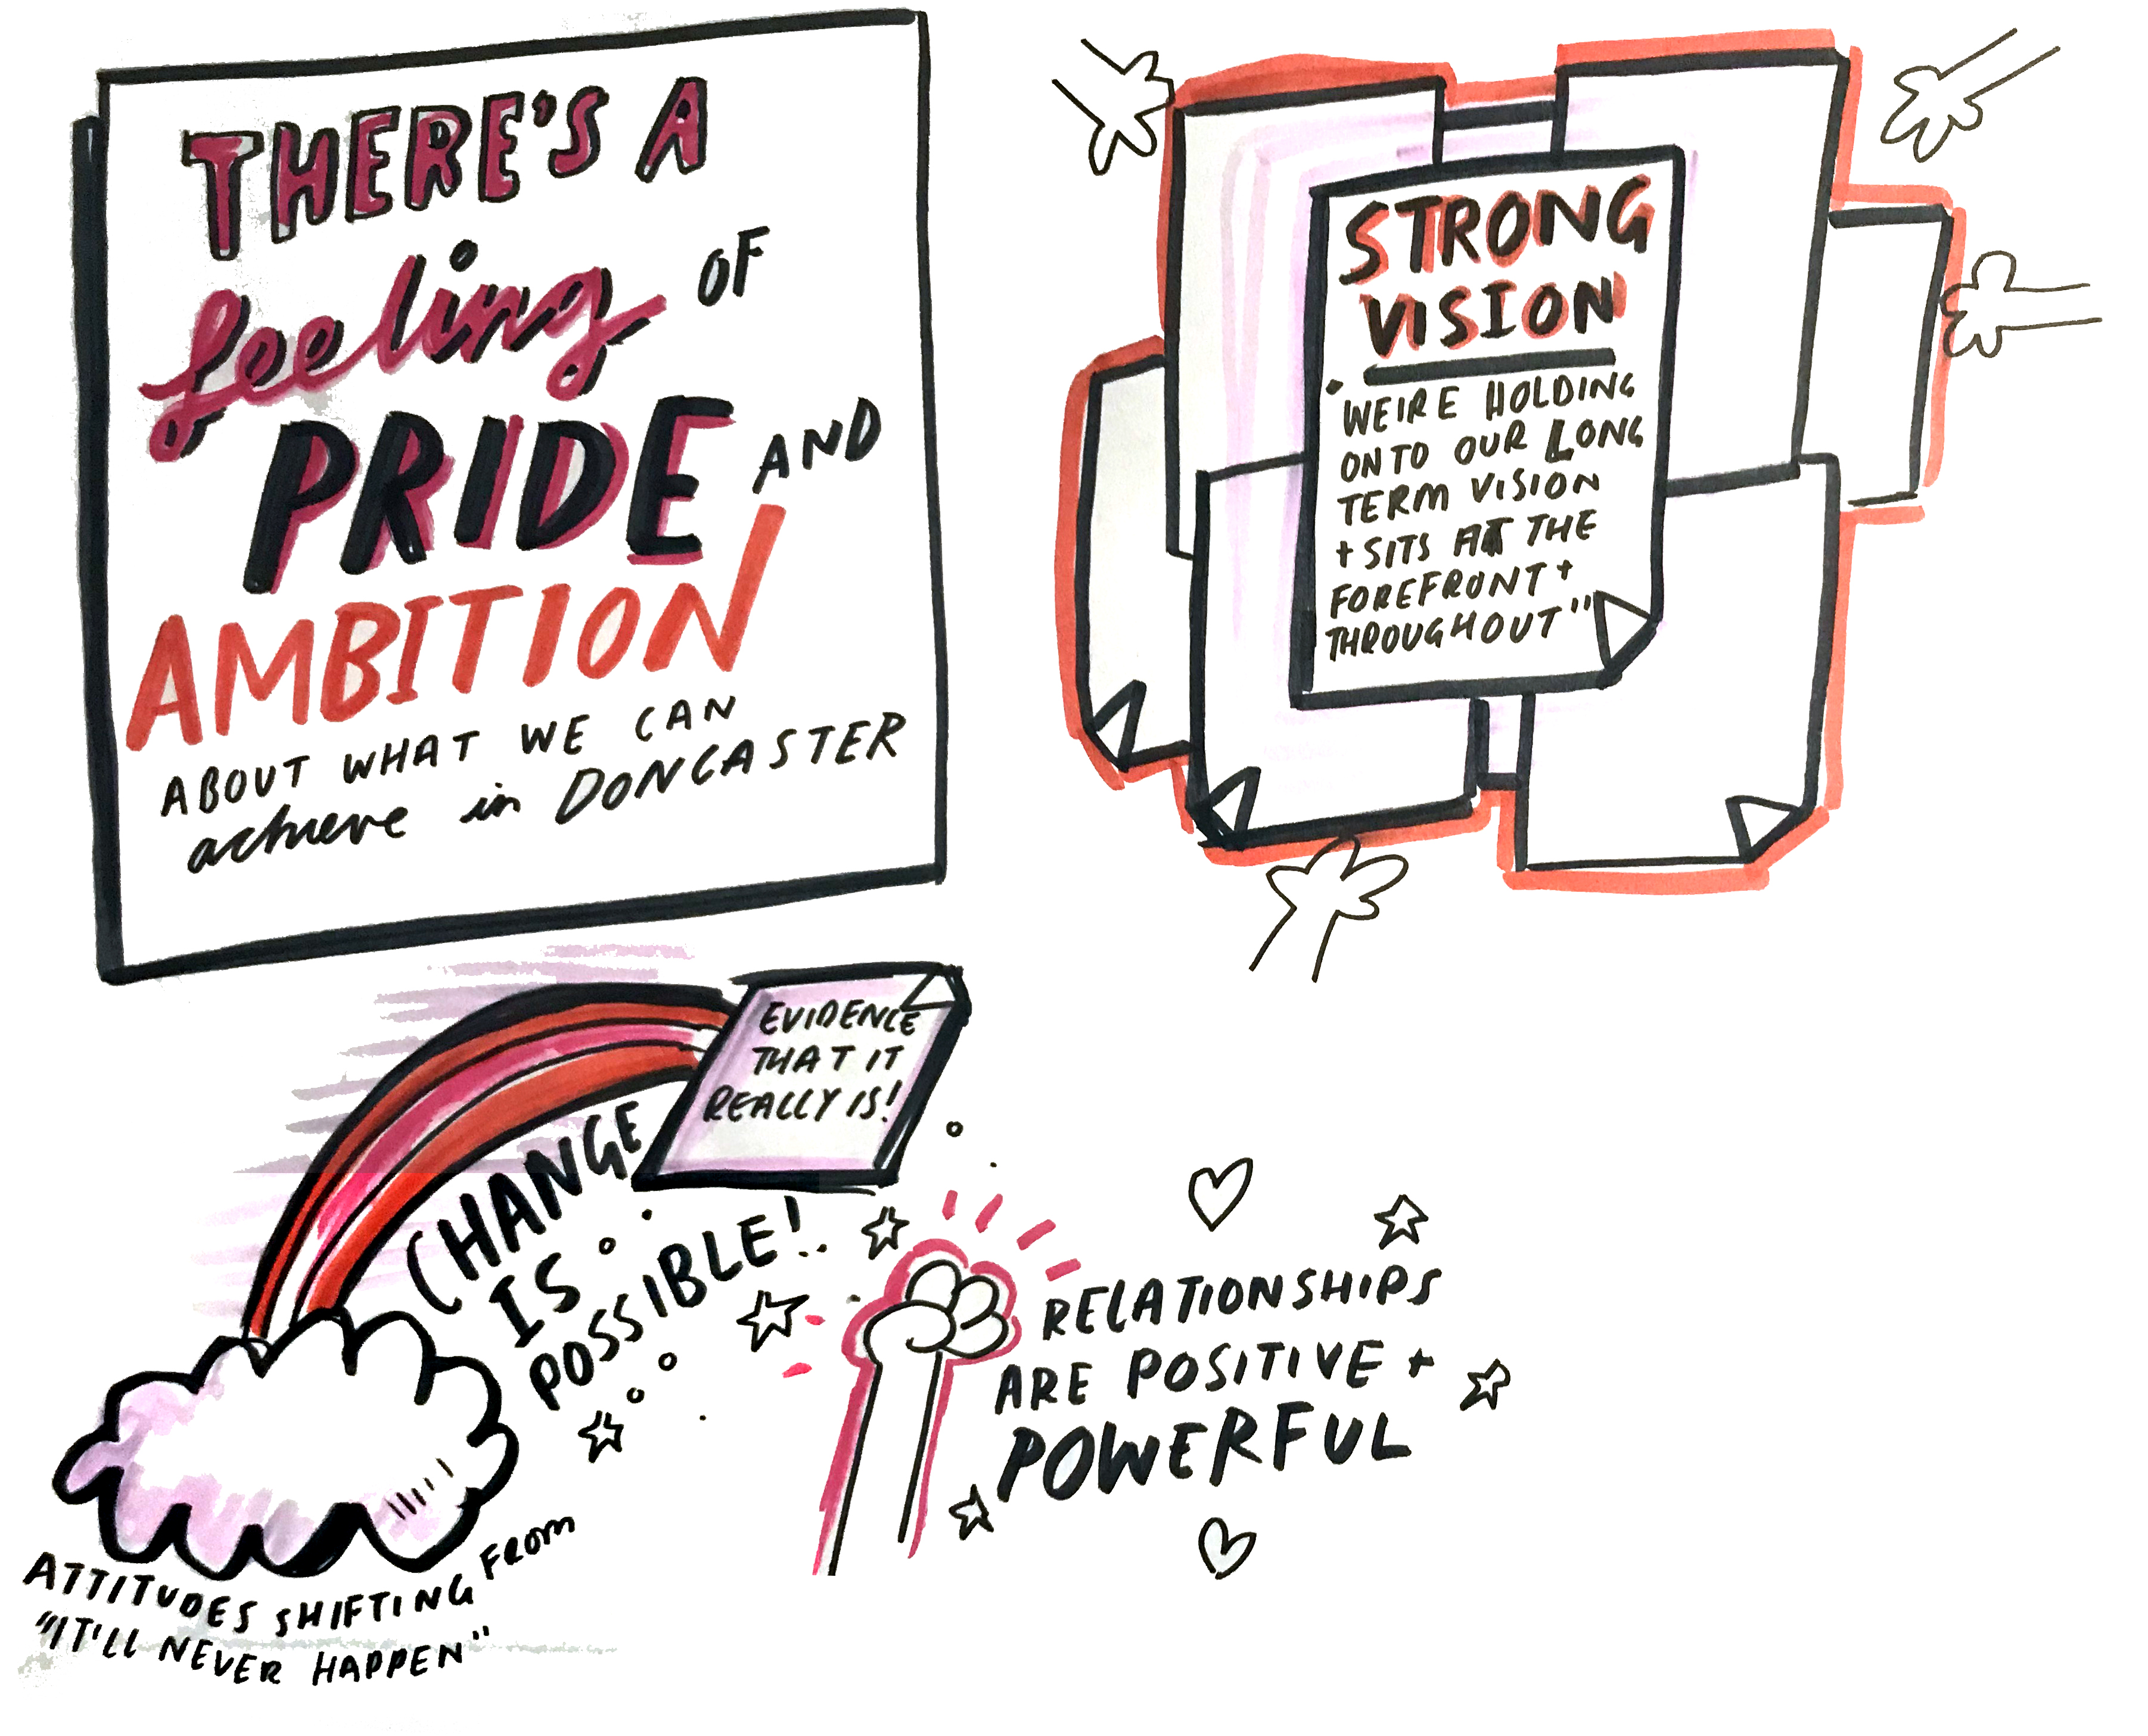 THERE'S A
feeling OF
PRIDE AND
AMBITION
ABOUT WHAT WE CAN
achieve in DONCASTER
STRONG
VISION
"WE'RE HOLDING
ONTO OUR LONG
TERM VISION
+ SITS AT THE
FOREFRONT +
THROUGHOUT"
EVIDENCE
THAT IT
REALLY IS!
CHANGE
IS
POSSIBLE!
ATTITUDES SHIFTING FROM
"IT'LL NEVER HAPPEN"
RELATIONSHIPS
ARE POSITIVE +
POWERFUL